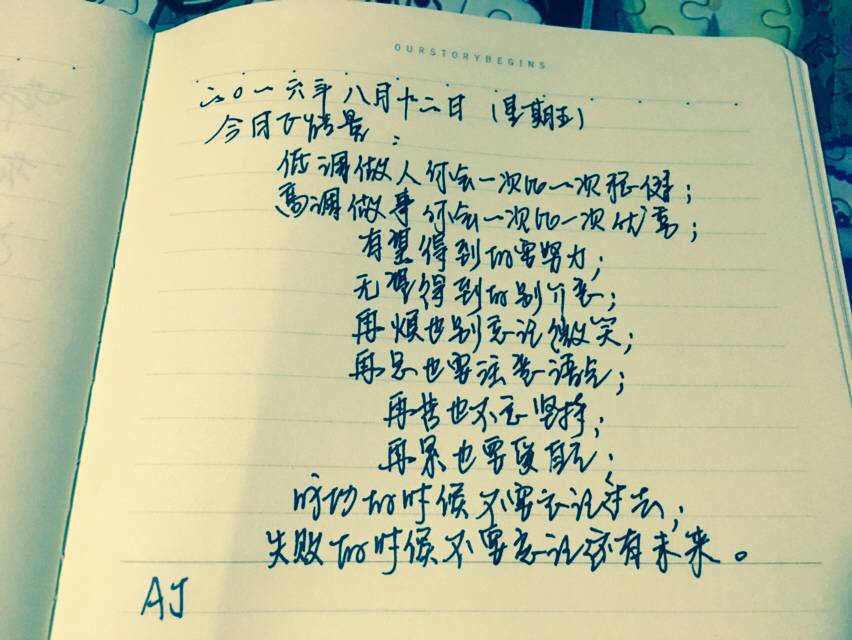 OURSTORYBEGINS
二〇一六年八月十二日(星期五)
今日心情景:
低调做人你会一次比一次稳健;
高调做事你会一次比一次优秀;
有望得到的要努力;
无望得到的别介意;
再烦也别忘记微笑;
再急也要注意语气;
再苦也不忘坚持;
再累也要爱自己;
成功的时候不要忘记过去;
失败的时候不要忘记还有未来。
AJ